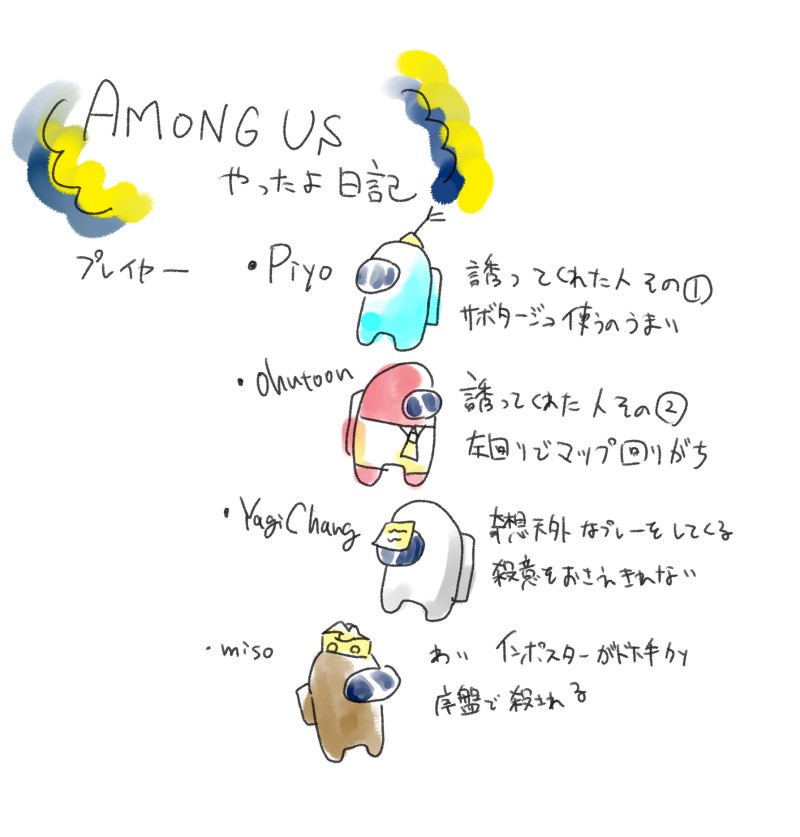 AMONG US
やったよ日記
プレイヤー
・Piyo
誘ってくれた人その①
サボタージュ使うのうまい
・ohutoon
誘ってくれた人その②
左回りでマップ回りがち
・YagiChang
奇想天外なプレーをしてくる
殺意をおさえきれない
・miso
わい インポスターがド下手クソ
序盤で殺される